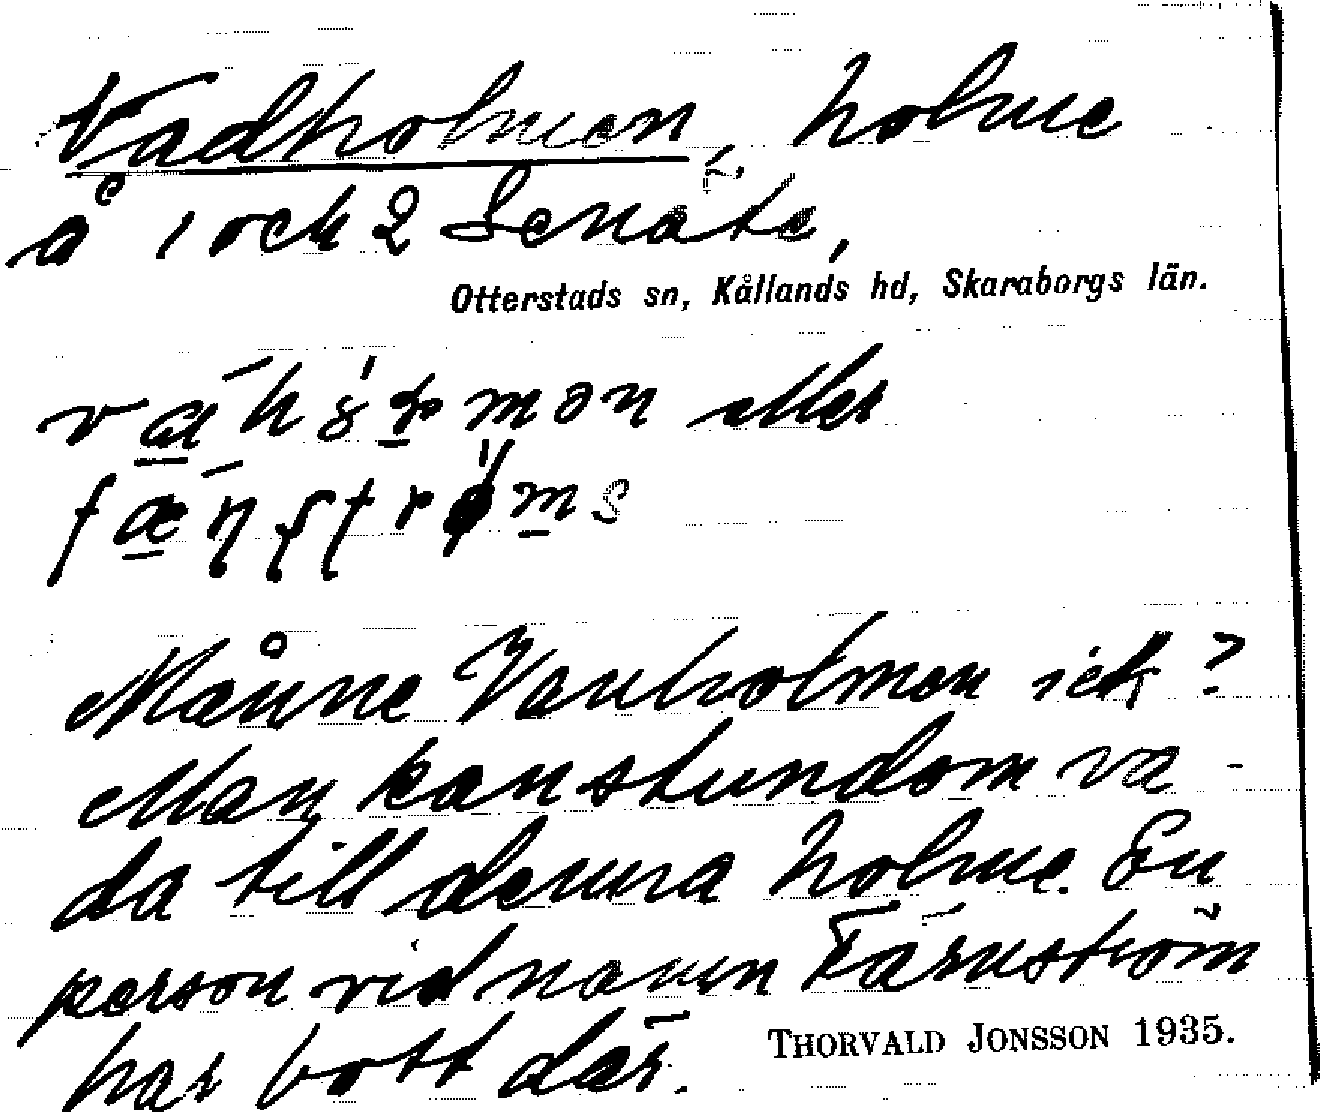 Vadholmen, holme
å 1 och 2 Senäte,
Otterstads sn, Kållands hd, Skaraborgs län.
eller
Månne Vanholmen ick?
Man kan stundom va-
da till denna holme. En
person vid namn Färnström
har bott där.
THORVALD JONSSON 1935.